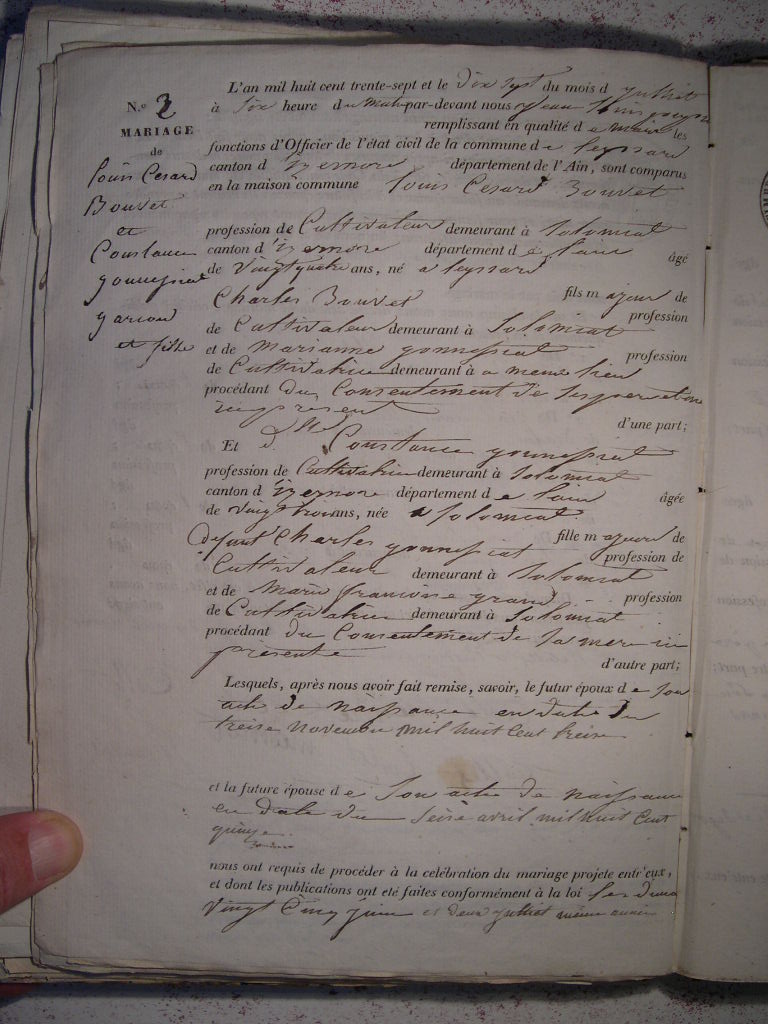 N.º 2
MARIAGE
de
Louis Cesard
Bouvet
et
Constance
gonnessiat
garcon
et fille
L'an mil huit cent trente-sept et le Dix sept du mois d juilliet
à Six heure du Matin par-devant nous jean Louis
remplissant en qualité de maire les
fonctions d'Officier de l'état civil de la commune de Leyssard
canton d'izernore département de l'Ain, sont comparus
en la maison commune Louis Cesard Bouvet
profession de Cultivateur demeurant à Solomiat
canton d'izernore département de l'ain âgé
de Vingt quatre ans, né a Leyssard
fils majeur de
Charles Bouvet profession
de Cultivateur demeurant à Solomiat
et de Marianne gonnessiat profession
de Cultivatrice demeurant à a meme lieu
procédant du Consentement de Ses pere et mere
ici present
d'une part;
Et d.lle Constance gonnessiat
profession de Cultivatrice demeurant à Solomiat
canton d'izernore département de l'ain âgée
de vingt trois ans, née a Solomiat
fille majeure de
defunt Charles gonnessiat profession de
Cultivateur demeurant à Solomiat
et de Marie francoise grand profession
de Cultivatrice demeurant à Solomiat
procédant du Consentement de Sa mere ici
présente
d'autre part;
Lesquels, après nous avoir fait remise, savoir, le futur époux de Son
acte de naissance en date du
treise novembre mil huit Cent treise
et la future épouse de Son acte de naissance
en date du Seise avril mil huit Cent
quinze
nous ont requis de procéder à la célébration du mariage projeté entr'eux,
et dont les publications ont été faites conformément à la loi Les Dimanche
Vingt Cinq juin et deux juilliet même année